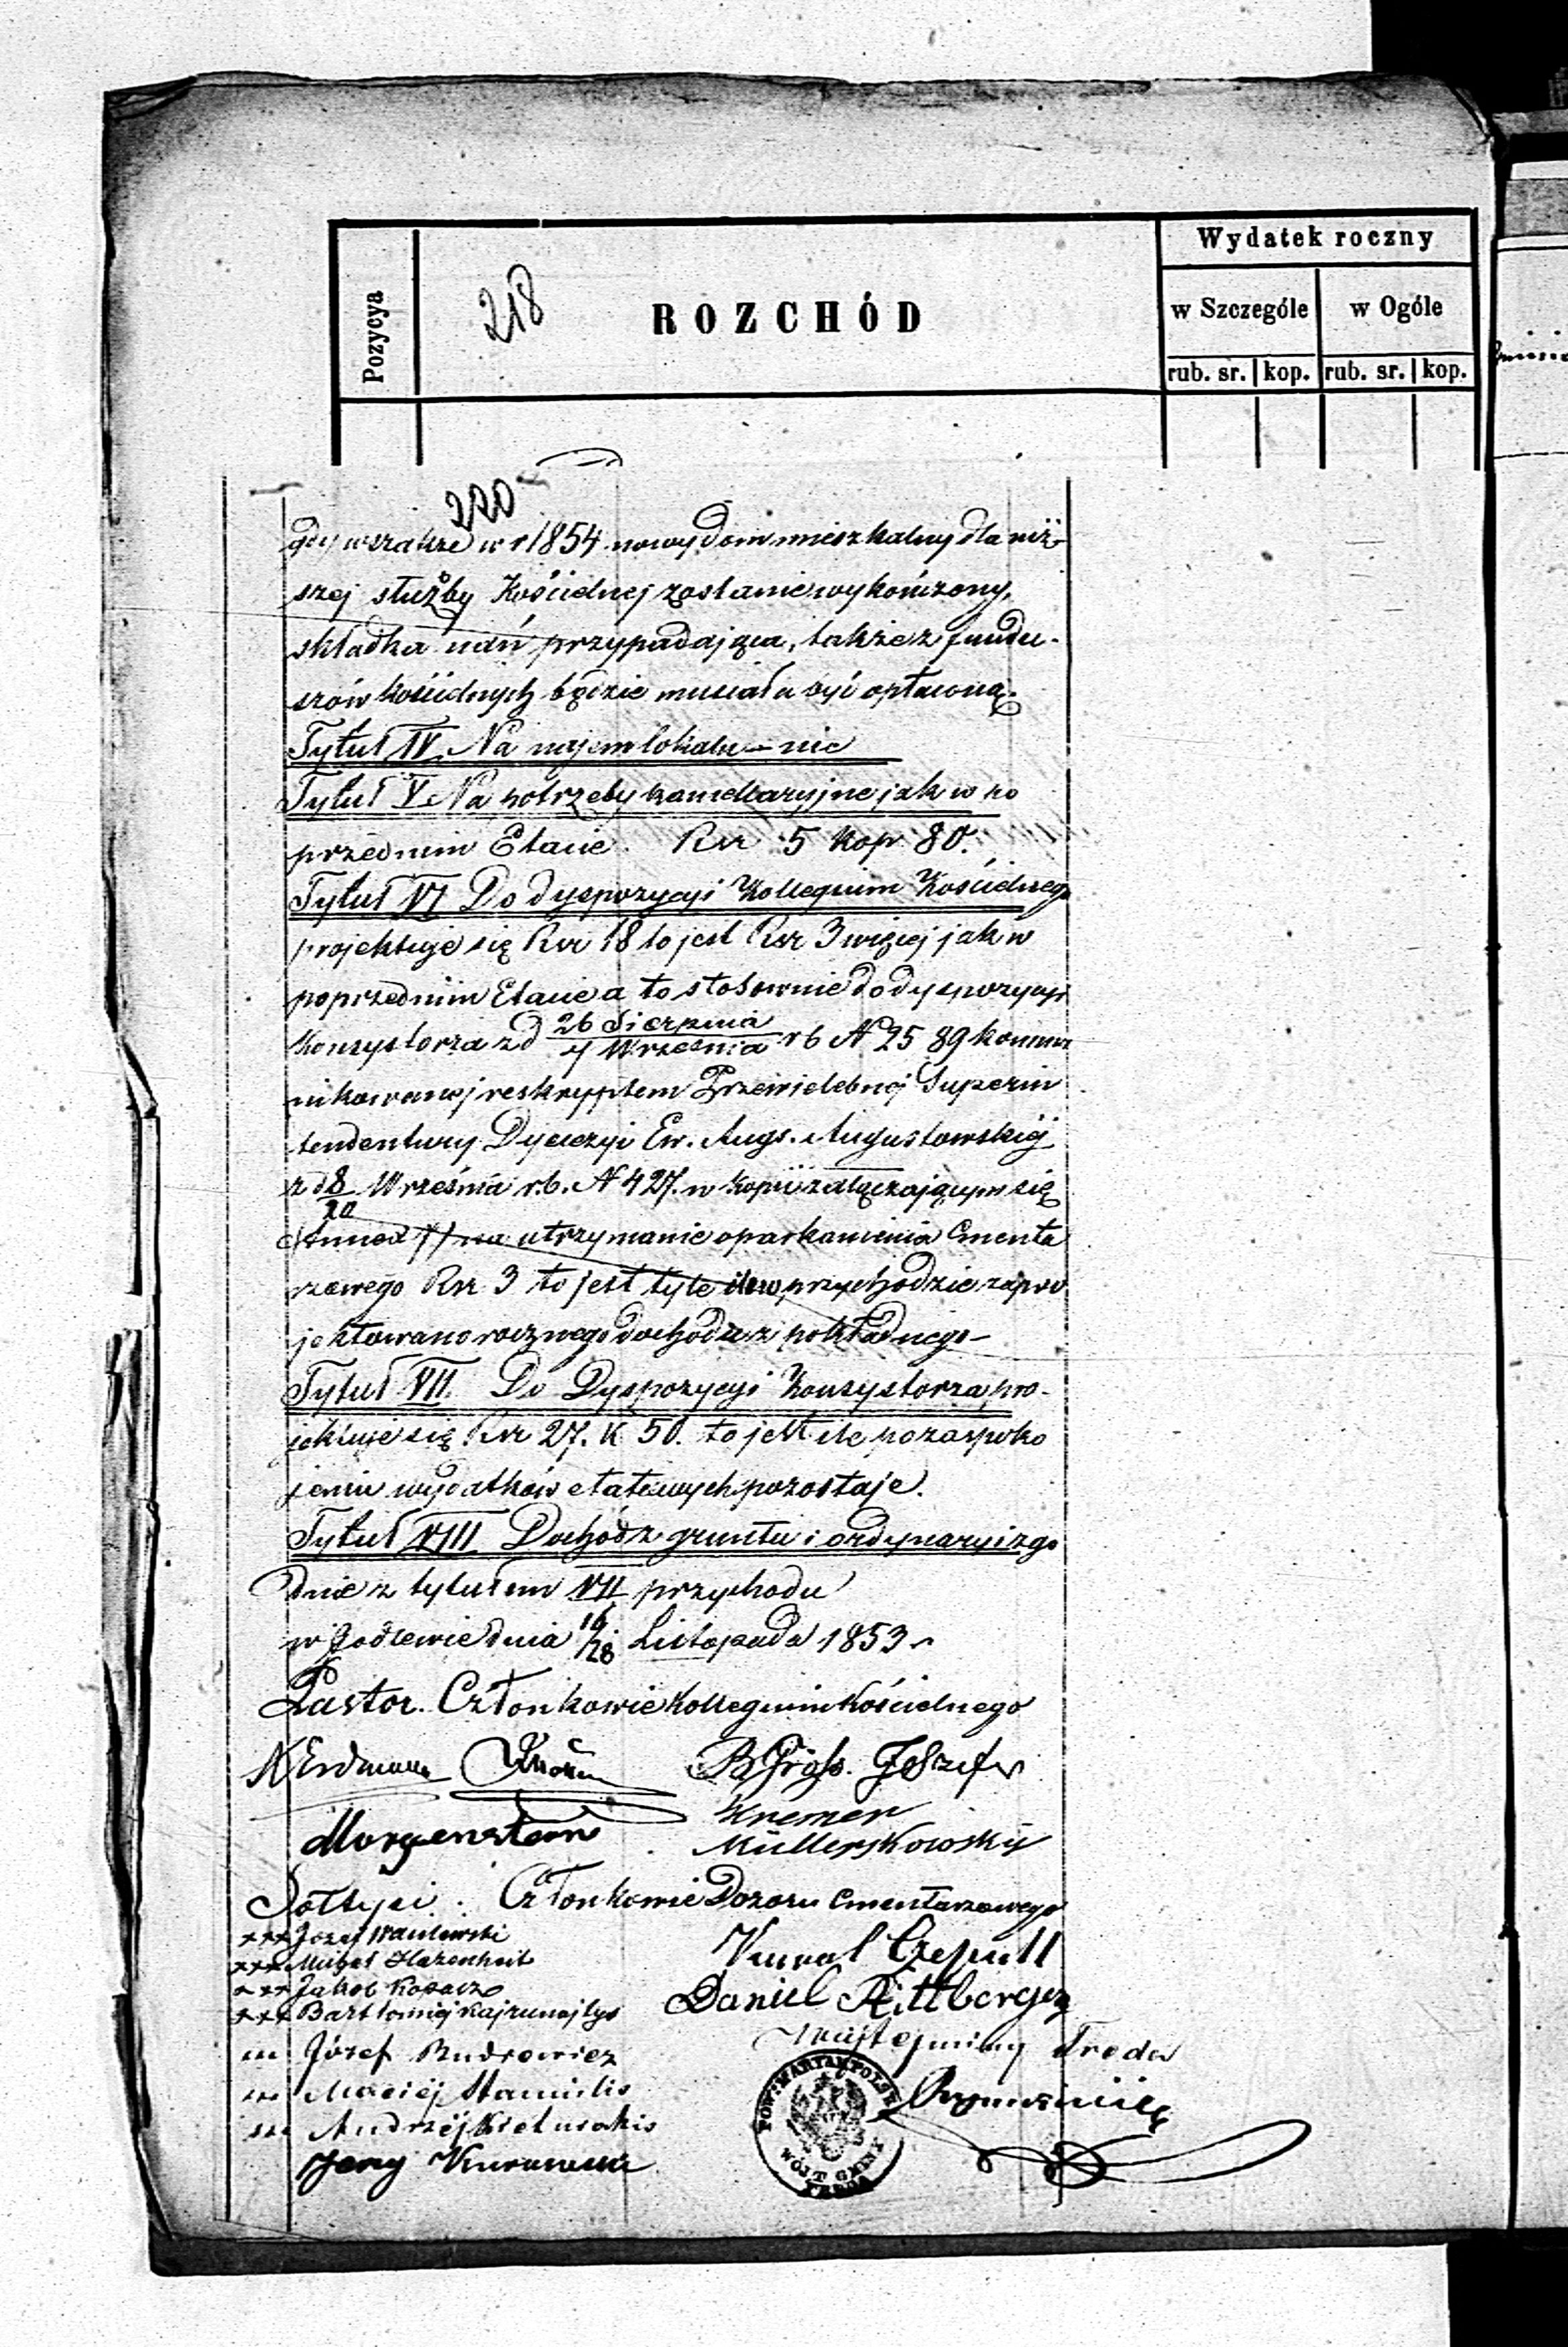 Pozycya
218
ROZCHÓD
Wydatek roczny
w Szczególe
w Ogóle
rub. sr. kop. rub. sr. kop.
220
gdy wszakże w r 1854 nowy dom mieszkalny dla niż-
szej służby Kościelnej zostanie wykończony,
składka nań przypadająca, także z fundu-
szów kościelnych będzie musiała być opłaconą.
Tytuł IV Na najem lokalu – nic
Tytuł V Na potrzeby kancellaryjne jak w po
przednim Etacie. Rsr 5 Kop 80.
Tytuł VI Do dyspozycyi Kollegium Kościelnego
projektuje się Rsr 18 to jest Rsr 3 więcej jak w
poprzednim Etacie a to stosownie do dyspozycyi
Konsystorza z d 26 Sierpnia / 7 Września r b N 2589 kommu
nikowanej reskryptem Przewielebnej Superin
tendentury Dyecezyi Ew. Augs. Augustowskiej
z d 8/20 Września r.b. N 427. w kopii załączającym się
(Annex) na utrzymanie oparkanienia Cmenta
rzowego Rsr 3 to jest tyle ile w przychodzie zapro
jektowano rocznego dochodu z pokładnego –
Tytuł VII. Do Dyspozycyi Konsystorza pro-
jektuje się Rsr 27. K 50. to jest ile po zaspoko
jeniu wydatków etatowych pozostaje.
Tytuł VIII Dochód z gruntu i ordynaryi zgo
dnie z tytułem VII przychodu
w Godlewie dnia 16/28 Listopada 1853 r
Pastor. Członkowie Kollegium Kościelnego
Erdmann
Morgenstern
Kremer
Müllerskowsky
Sołtysi. Członkowie Dozoru Cmentarzowego
+++ Józef
+++ Michał
+++ Jakob
+++ Bartłomiej Kajrunajtys
+++ Józef Rudzewicz
+++ Maciej Stamulis
+++ Andrzej
Jerzy
Daniel Rittberger
Wójt Gminy Freda
WÓJT GMINY
FREDA